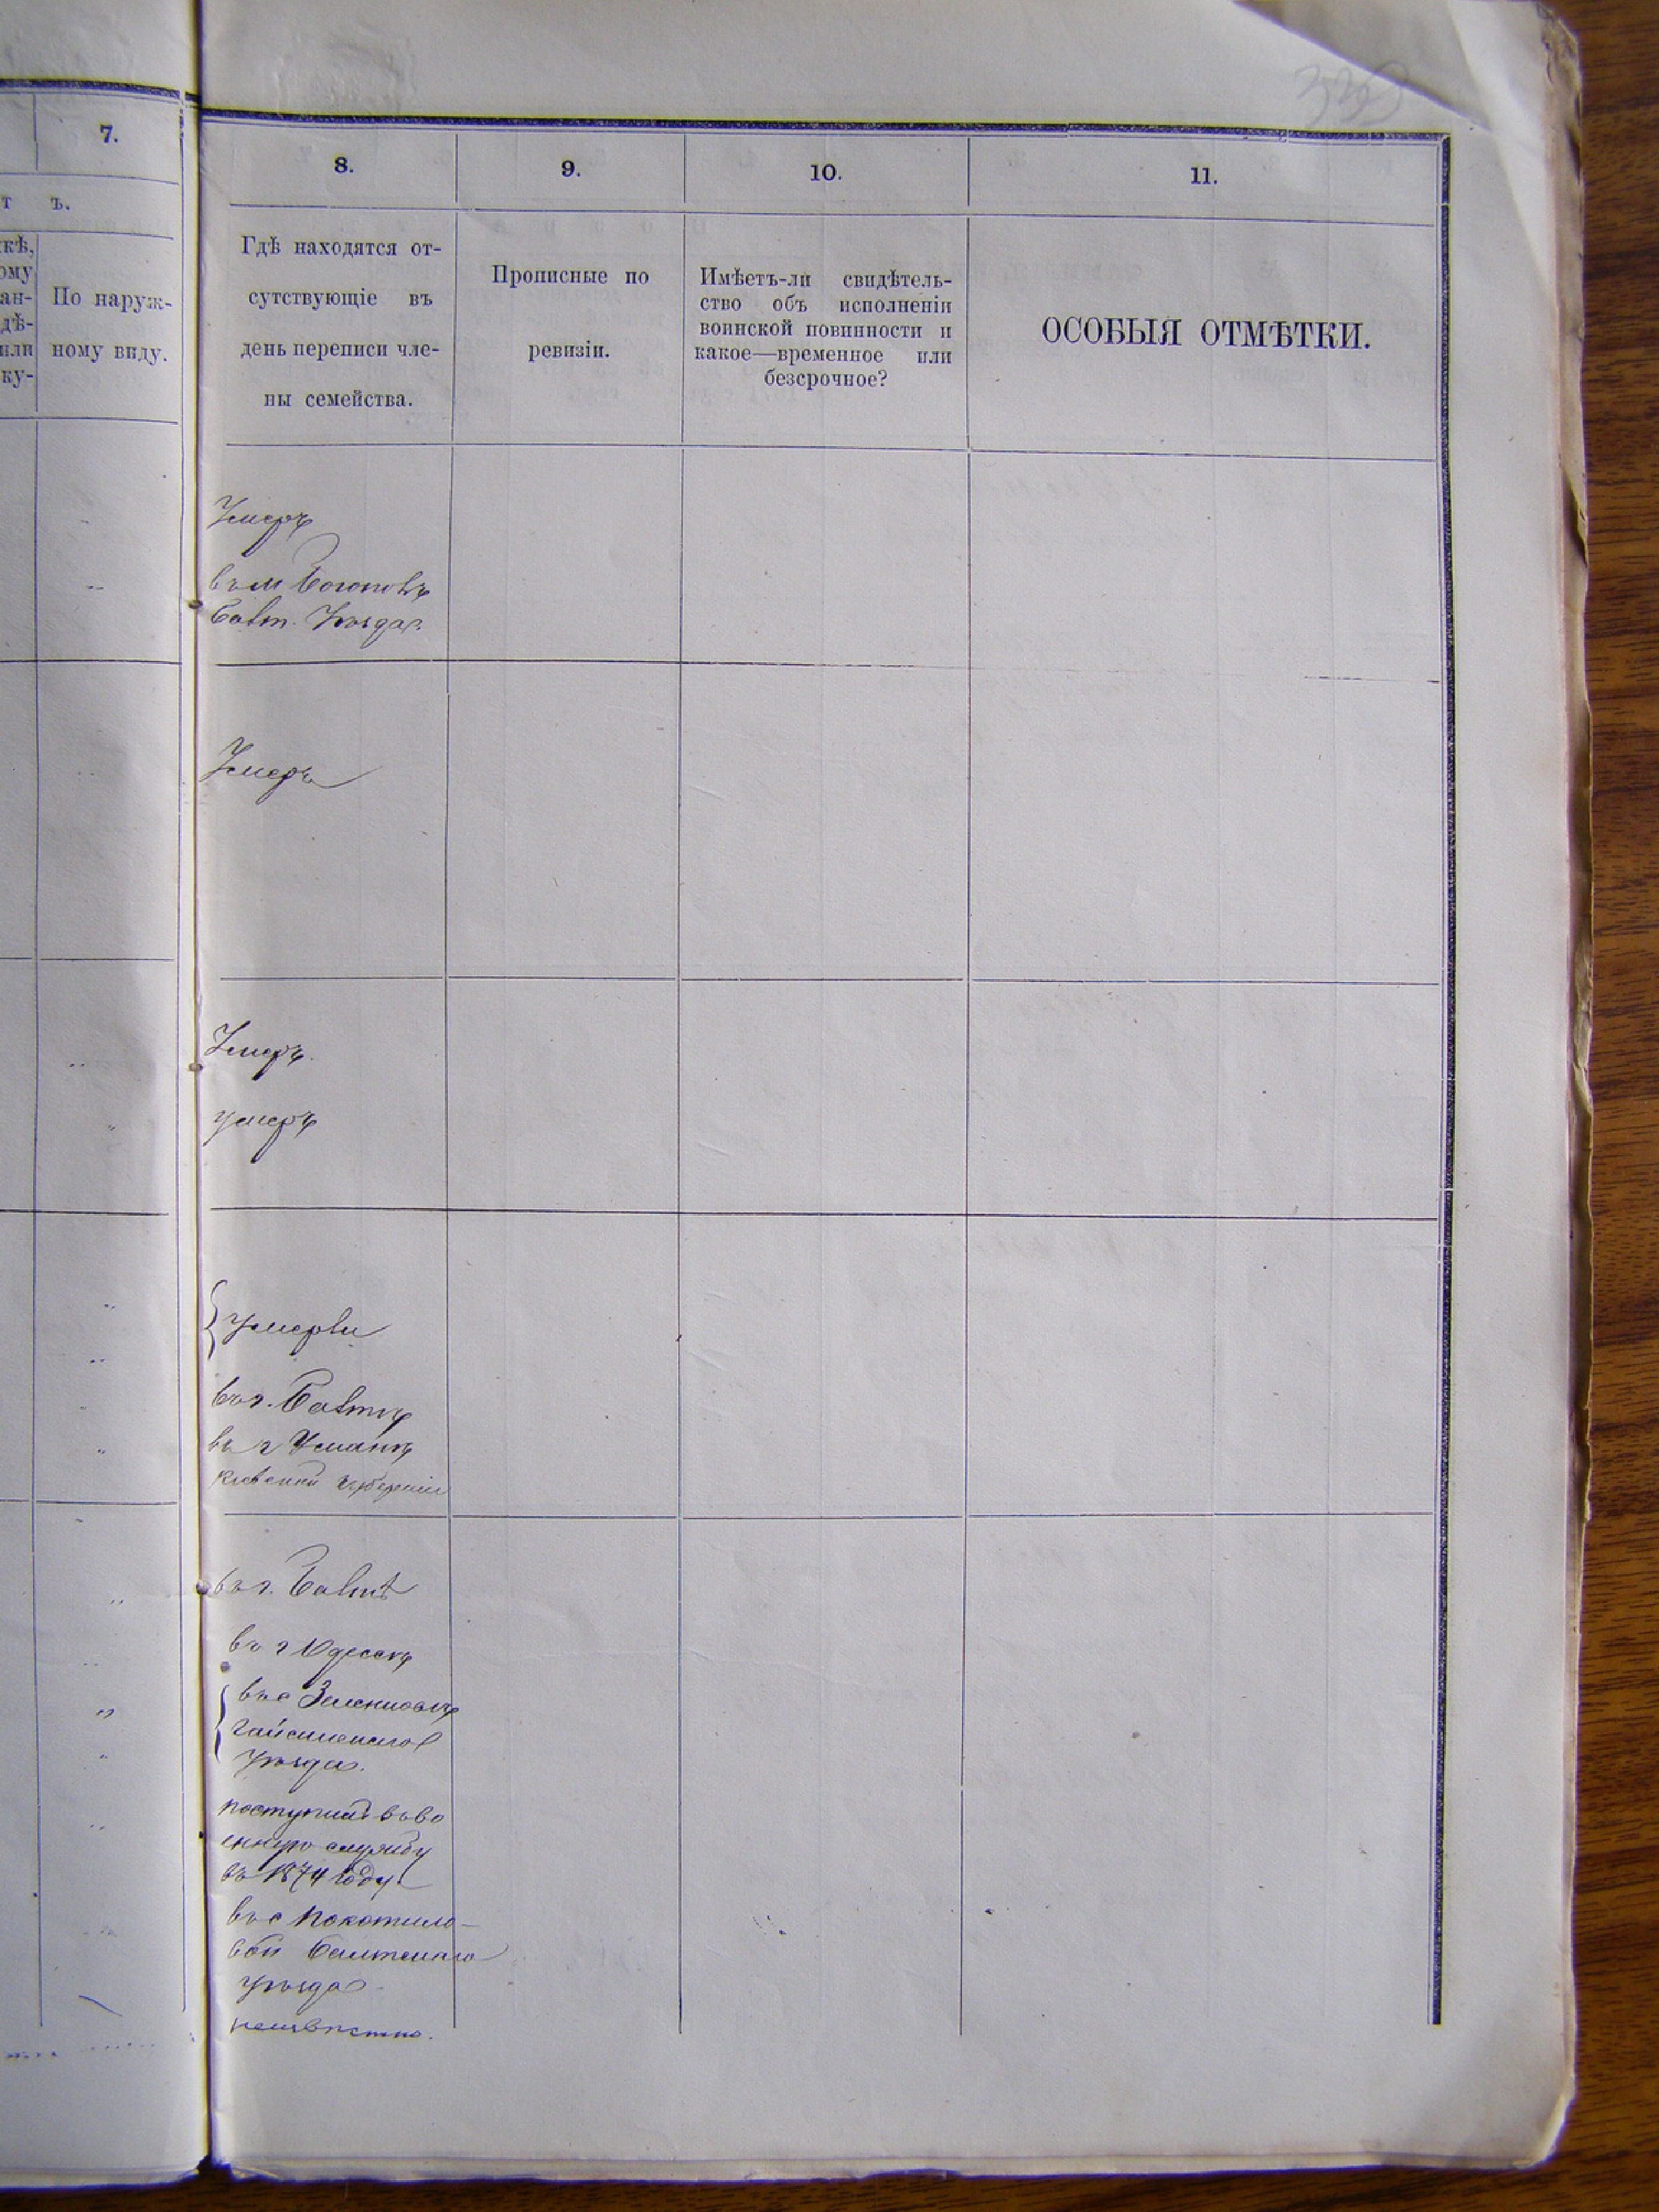 7.
8.
9.
10.
11.
т ъ.
кѣ,
ому
ан-
дѣ-
или
ку-
По наруж-
ному виду.
Гдѣ находятся от-
сутствующіе въ
день переписи чле-
ны семейства.
Прописные по
ревизіи.
Имѣетъ-ли свидѣтель-
ство объ исполненіи
воинской повинности и
какое—временное или
безсрочное?
ОСОБЫЯ ОТМѢТКИ.
Умеръ
въ м Богополѣ
Балт. Уѣзда
Умеръ
Умеръ
умеръ
умерли
въ г. Балтѣ
въ г Уманѣ
Кіевской губерніи
въ г. Балтѣ
въ г Одессѣ
въ с
Гайсинскаго
Уѣзда.
поступилъ въ во
енную службу
въ 1874 году
въ с Покотило-
вой Балтскаго
уѣзда
неизвѣстно.